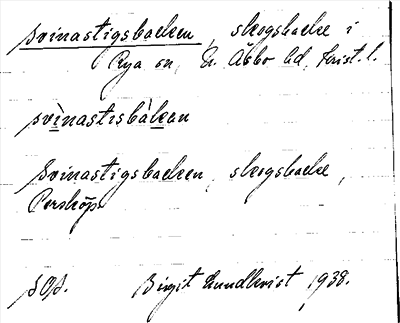 Svinastigsbacken, skogsbacke i
Rya sn, N. Åsbo hd, Krist. l.
svìnastisbàkan
Svinastigsbacken, skogsbacke,
Perstorp
SOS. Birgit Lundkvist 1938.